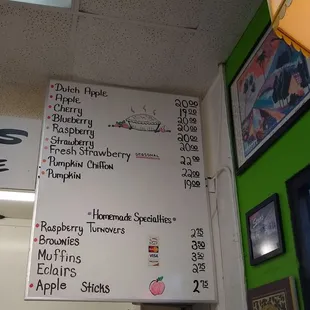 Dutch Apple 20.00
Apple 19.00
Cherry 20.00
Blueberry 20.00
Raspberry 20.00
Strawberry 20.00
Fresh Strawberry SEASONAL 22.00
Pumpkin Chiffon 22.00
Pumpkin 19.00
"Homemade Specialties"
Raspberry Turnovers 2.75
Brownies 3.00
Muffins 3.50
Eclairs 2.75
Apple Sticks 2.75